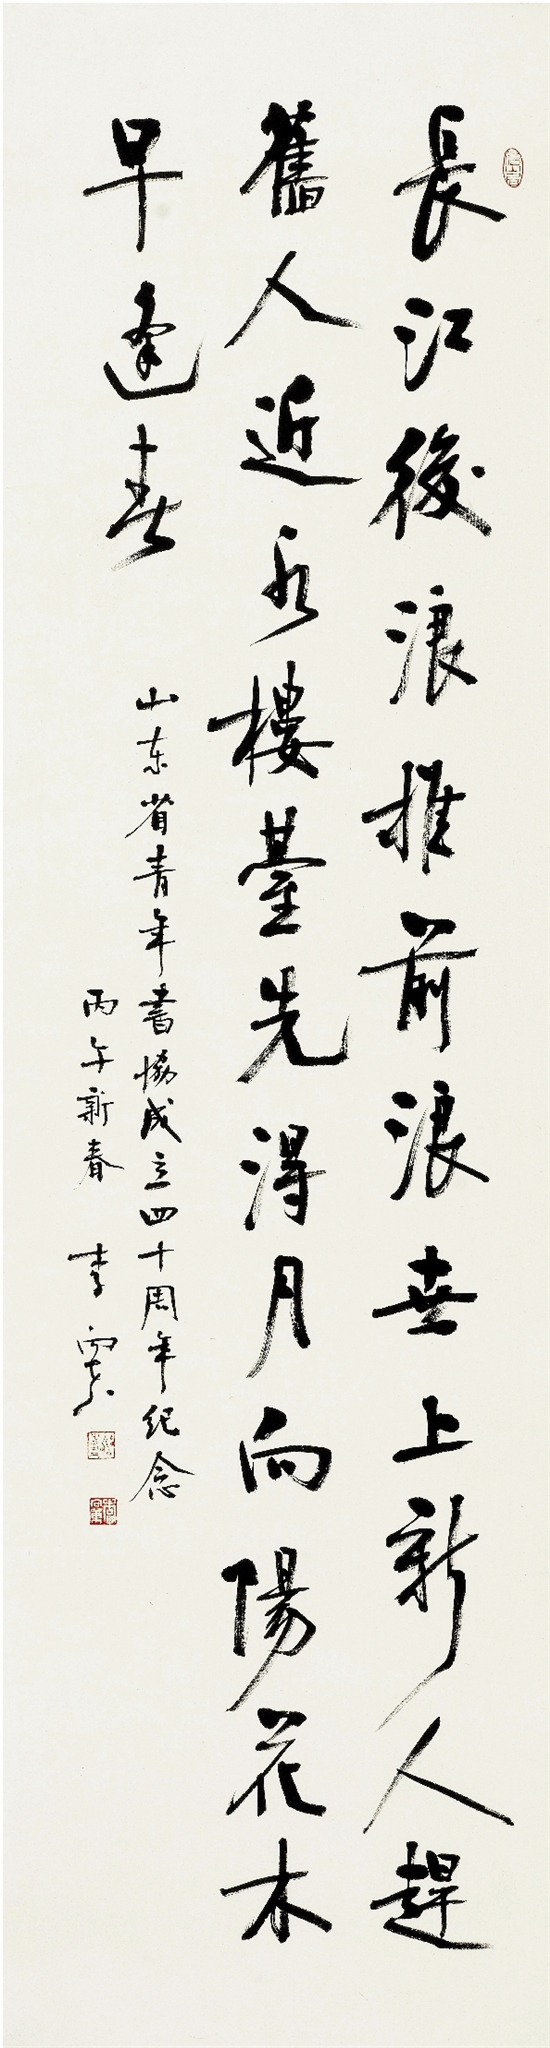 長江後浪推前浪世上新人趕
舊人近水樓臺先得月向陽花木
早逢春
山东省青年書協成立四十周年纪念
丙午新春 李